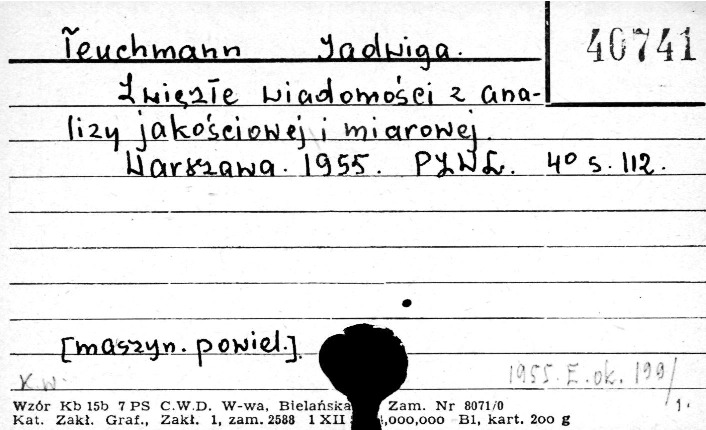 Teuchmann Jadwiga.
40741
Zwięzłe wiadomości z ana-
lizy jakościowej i miarowej.
Warszawa. 1955. PZWL. 4° s. 112.
[maszyn. powiel.].
K.W.
1955. E. ok. 199/
1.
Wzór Kb 15b 7 PS C.W.D. W-wa, Bielańska Zam. Nr 8071/0
Kat. Zakł. Graf., Zakł. 1, zam. 2588 1 XII ,000,000 B1, kart. 200 g